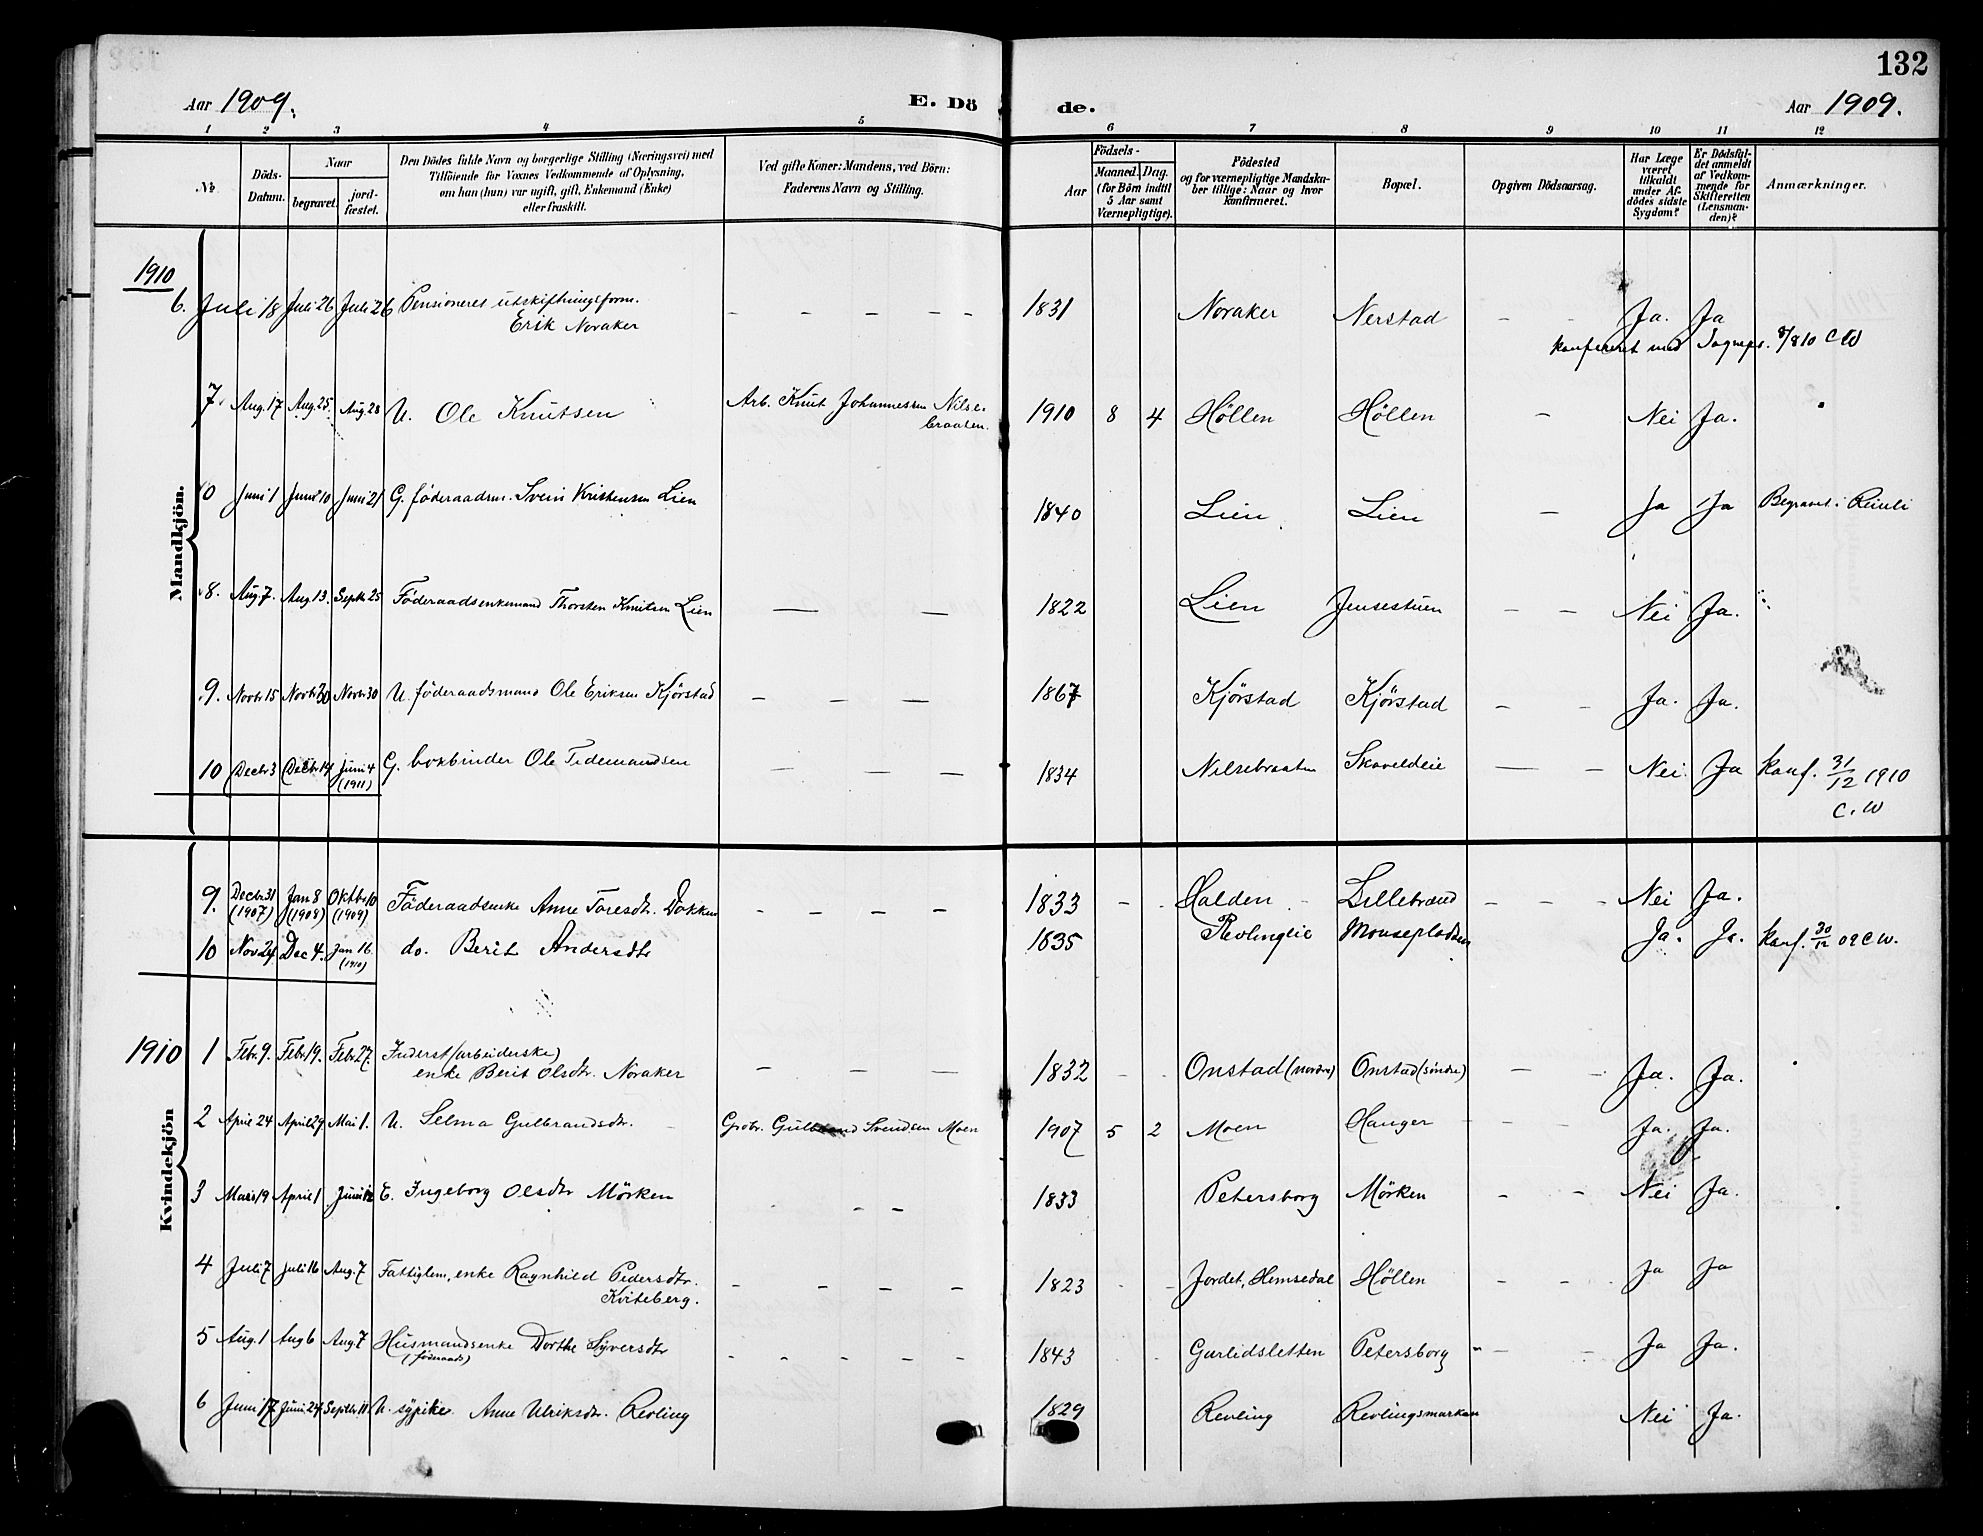 132
Aar 1909. E. Dö de. Aar 1909.
1 2 3 4 5 6 7 8 9 10 11 12
No. Döds-Datum. Naar begravet. jordfæstet. Den Dödes fulde Navn og borgerlige Stilling (Næringsvei) med Tilföiende for Voxnes Vedkommende af Oplysning, om han (hun) var ugift, gift, Enkemand (Enke) eller fraskilt. Ved gifte Koner: Mandens, ved Börn: Faderens Navn og Stilling. Födsels- Aar Maaned. Dag. (for Börn indtil 5 Aar samt Værnepligtige). Födested og for værnepligtige Mandskaber tillige: Naar og hvor konfirmeret. Bopæl. Opgiven Dödsaarsag. Har Læge været tilkaldt under Afdödes sidste Sygdom? Er Dödsfaldet anmeldt af Vedkommende for Skifteretten (Lensmanden)? Anmærkninger.
Mandkjön.
1910
6. Juli 18 Juli 26 Juli 26 Pensioneret utskiftningsform. Erik Noraker – – – – – 1831 Noraker Nerstad – – Ja. Ja
konfereret med Sogneps. 8/8 10 CW
7. Aug. 17 Aug. 25. Aug. 28 U. Ole Knutsen Arb. Knut Johannessen Nilsebraaten. 1910 8 4 Höllen Höllen – Nei Ja.
0 Juni 1 Juni 10 Juni 21 G. föderaadsm. Svein Kristensen Lien 1840 Lien Lien – Ja Ja Begravet i Reinli
8. Aug. 7. Aug. 13. Septb. 25 Föderaadsenkemand Thorsten Knutsen Lien — – 1822 Lien Jensestuen – – Nei Ja.
9. Novbr. 15 Novbr. 30 Novbr. 30 U. föderaadsmand Ole Eriksen Kjörstad – – – 1867 Kjörstad Kjörstad – – Ja. Ja.
10 Decbr. 3 Decbr. 14 Juni 4 (1911) G. bokbinder Ole Tidemandsen – – – 1834 Nilsebraaten Skoveldeie — – Nei. Ja konf. 31/12 1910
C. W
Kvindekjön
9. Decbr. 31 (1907) Jan 8 (1908) Oktbr. 10 (1909) Föderaadsenke Anne Toresdtr. Dokken – – – – 1833 – – Halden Lillebrænd – – – Nei Ja.
10 Nov 24 Dec 4. Jan 16. (1910) do. Berit Andersdtr 1835 Revlingeie Monsepladsen Ja. Ja. konf. 30/12 09 C W.
1910
1 Febr. 9. Febr. 19. Febr. 27. Inderst (arbeiderske)
enke Berit Olsdtr. Noraker – – — 1832 – – Onstad (nordre) Onstad (söndre) – – Ja. Ja.
2 April 24 April 29 Mai 1. U. Selma Gulbrandsdtr. Grbr. Gulbrand Svendsen Moen 1907 5 2 Moen Hanger – – – Ja. Ja.
3 Mars 19 April 1 Juni 12 E. Ingeborg Olsdtr Mörken – – – 1833 Petersborg Mörken – – Nei Ja.
4 Juli 7 Juli 16 Aug. 7 Fattiglem, enke Ragnhild Pedersdtr.
Kviteberg. – – – – 1823 – – Jordet, Hemsedal Höllen – – Ja Ja
5 Aug. 1 Aug 6 Aug. 7 Husmandsenke Dorthe Syversdtr
(föderaads) – – – – – 1843 – – Gurlidsletten Petersborg – – Ja Ja.
6 Juni 17 Juni 24 Septbr 11. U. sypike Anne Ulriksdtr. Revling 1829 Revling Revlingsmarken Nei Ja.